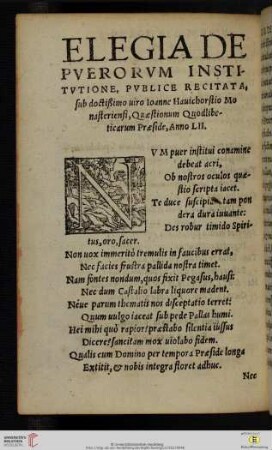 ELEGIA DE
PVERORVM INSTI
TVTIONE, PVBLICE RECITATA,
sub doctissimo uiro Ioanne Hauichorstio Mo
nasteriensi, Quæstionum Quodlibe-
ticarum Præside, Anno LII.
NVM puer institui conamine
debeat acri,
Ob nostros oculos quæ-
stio scripta iacet.
Te duce suscipiam tam pon
dera dura iuuante:
Des robur timido Spiri-
tus, oro, sacer.
Non uox immeritò tremulis in faucibus errat,
Nec facies frustra pallida nostra timet.
Nam fontes nondum, quos fixit Pegasus, hausi:
Nec dum Castalio labra liquore madent.
Neue parum thematis nos disceptatio terret:
Quum uulgo iaceat sub pede Pallas humi.
Hei mihi quò rapior? præstabo silentia iussus
Dicere? sanctam mox uiolabo fidem.
Qualis cum Domino per tempora Præside longa
Extitit, & nobis integra floret adhuc.
Nec